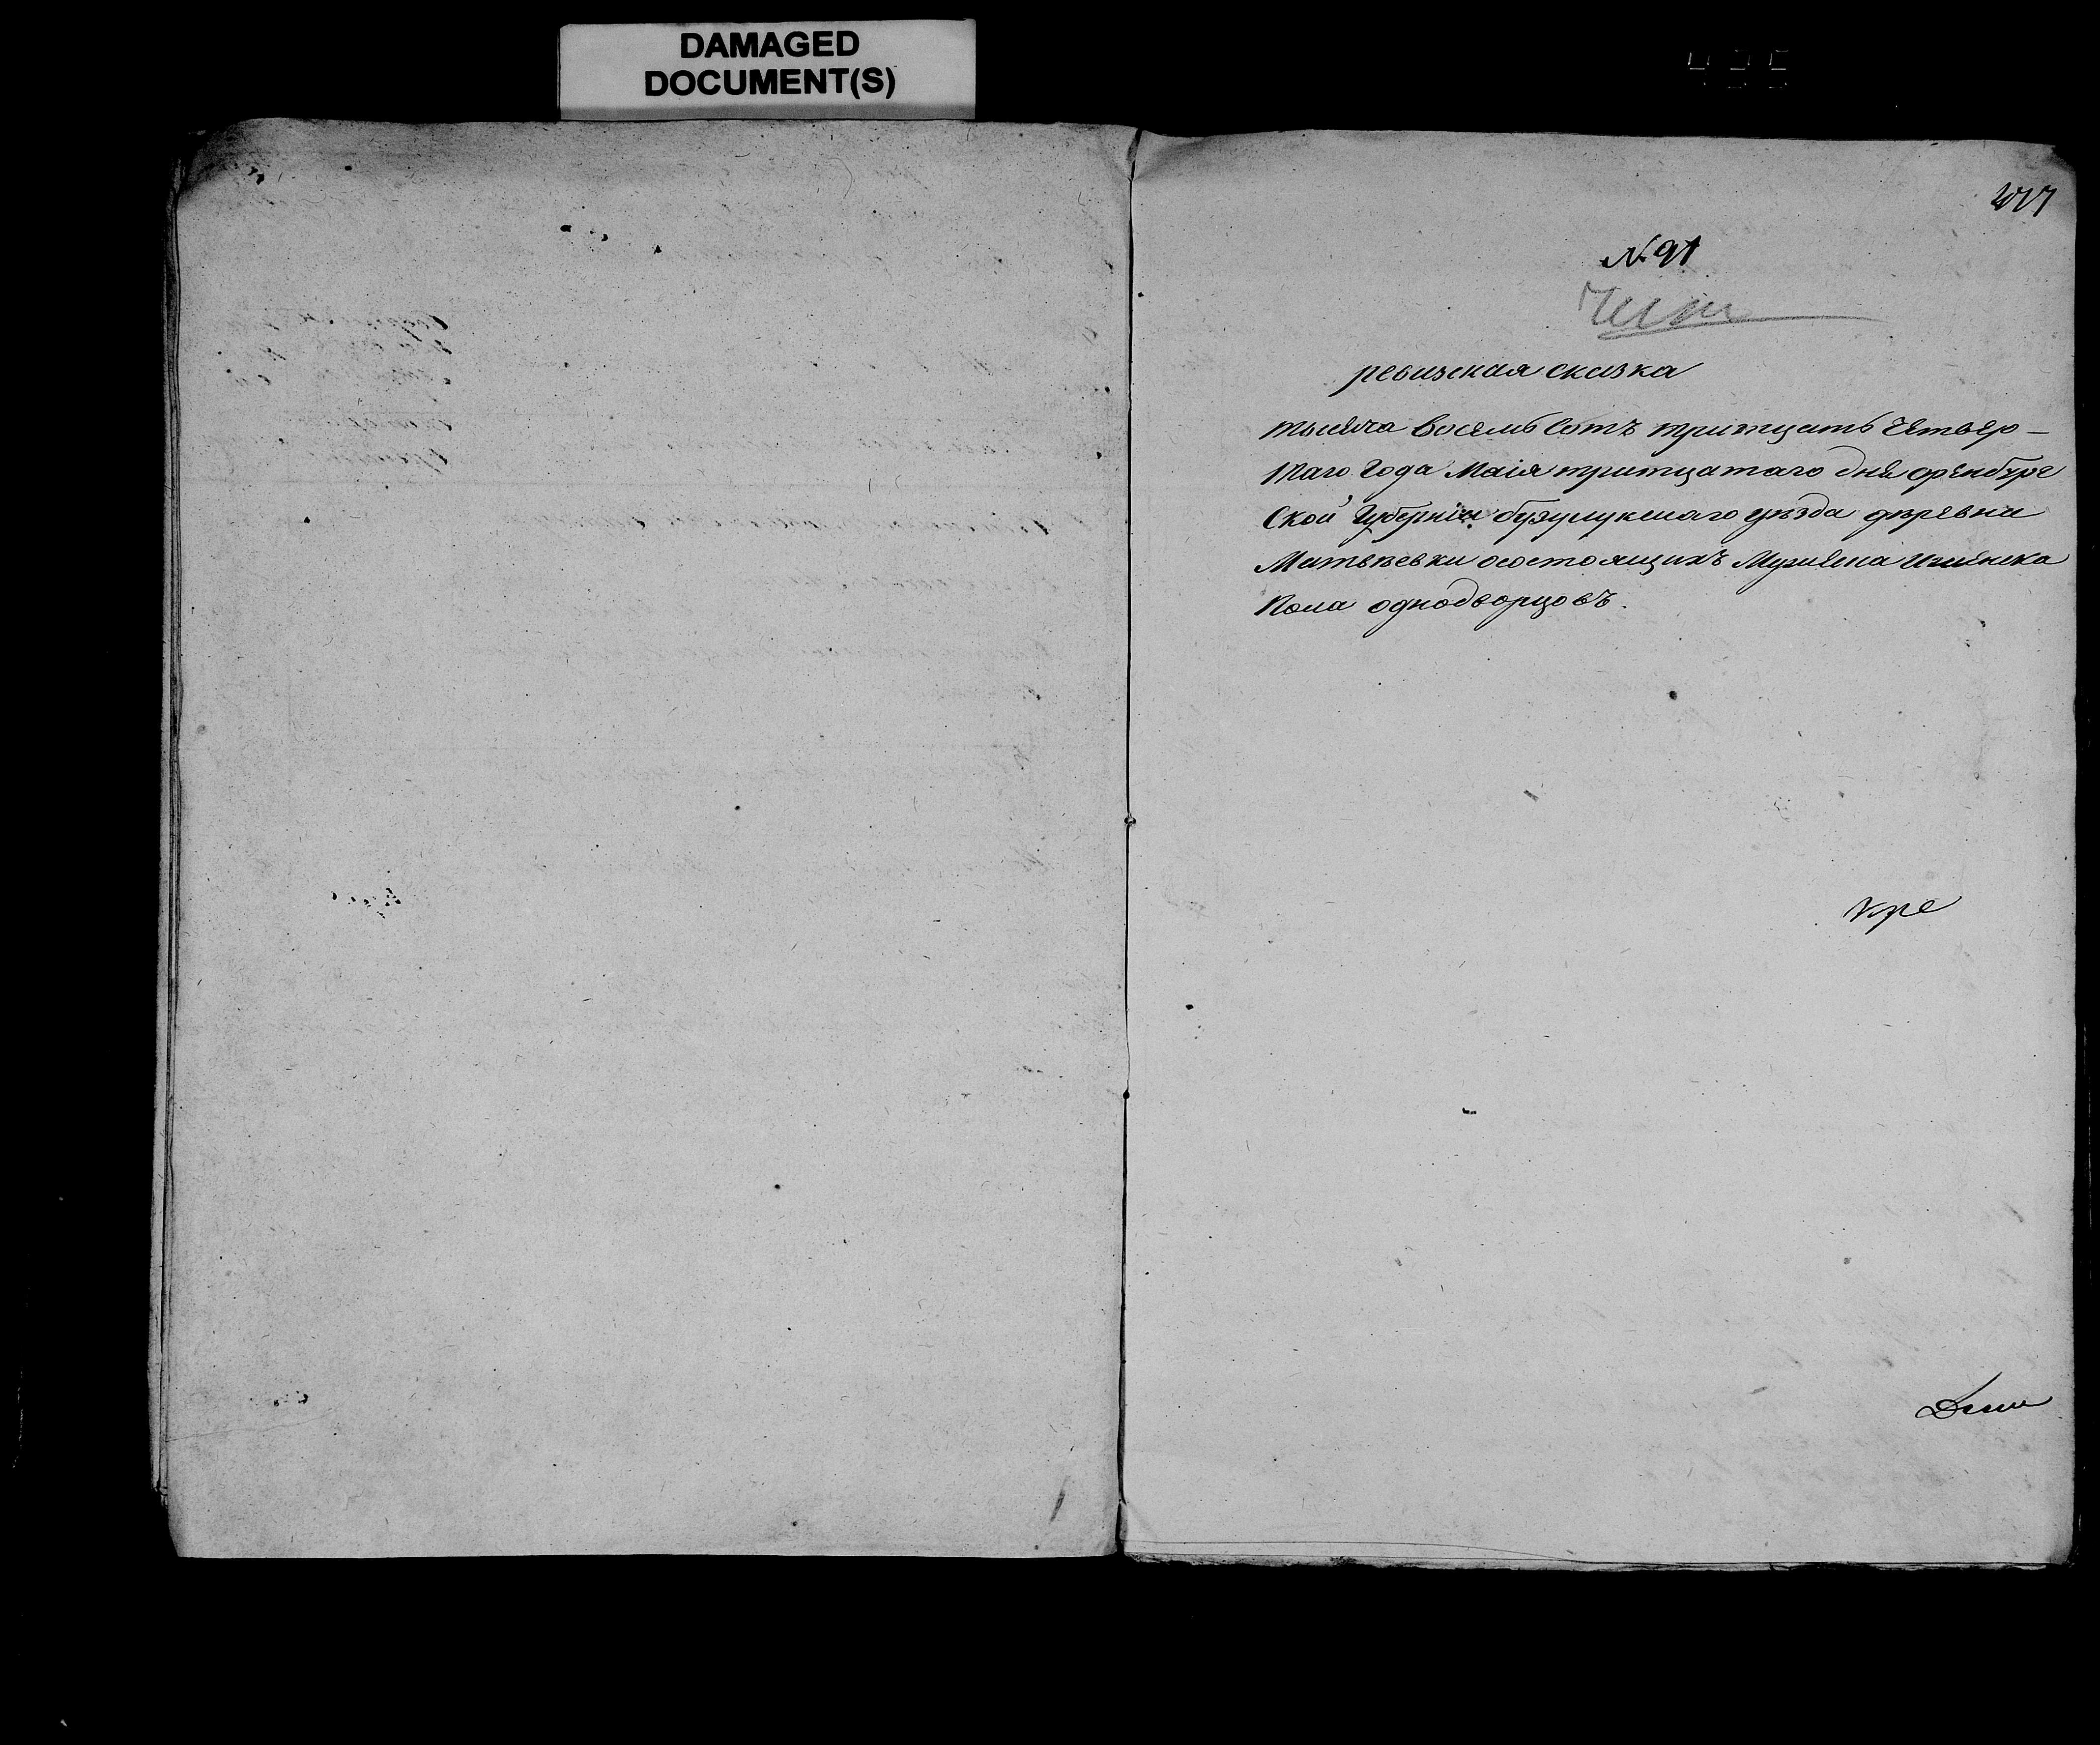 DAMAGED
DOCUMENT(S)
№ 91
ревизская сказка
тысяча восемь сотъ тритцать четвер-
таго года маія тритцатаго дня оренбург
ской губерніи бузулукскаго уѣзда деревни
Матвѣевки осостоящихъ мужеска иженска
пола однодворцовъ.
кре